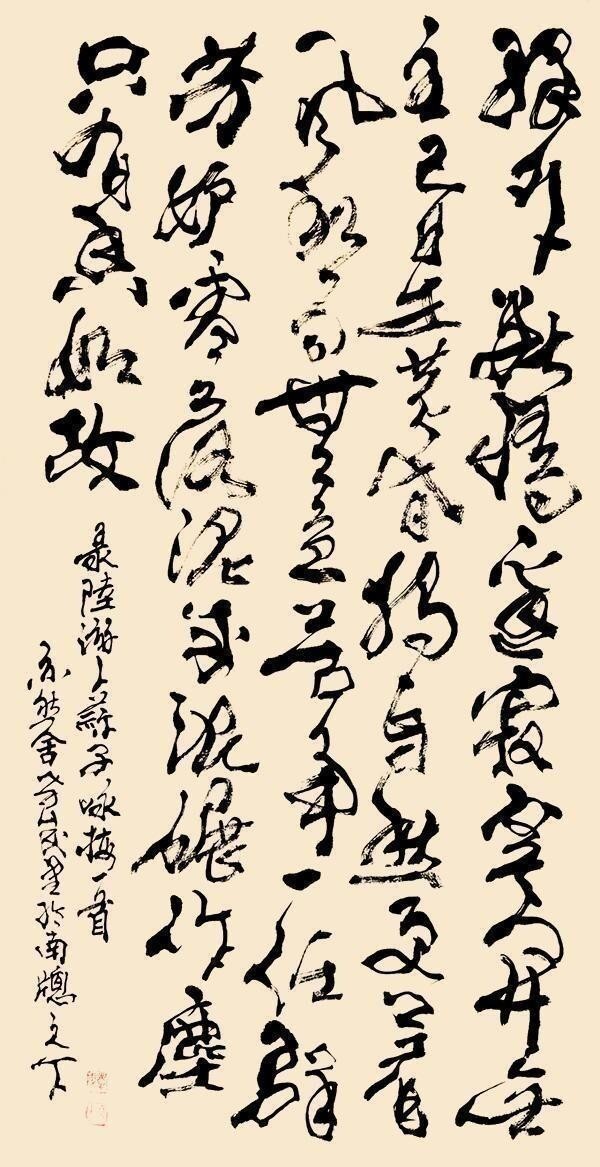 驛外斷橋邊寂寞開無
主已是黃昏獨自愁更著
風和雨無意苦争一任群
芳妒零落泥成泥碾作塵
只有香如故
录陸游卜算子咏梅一首
於南牕之下